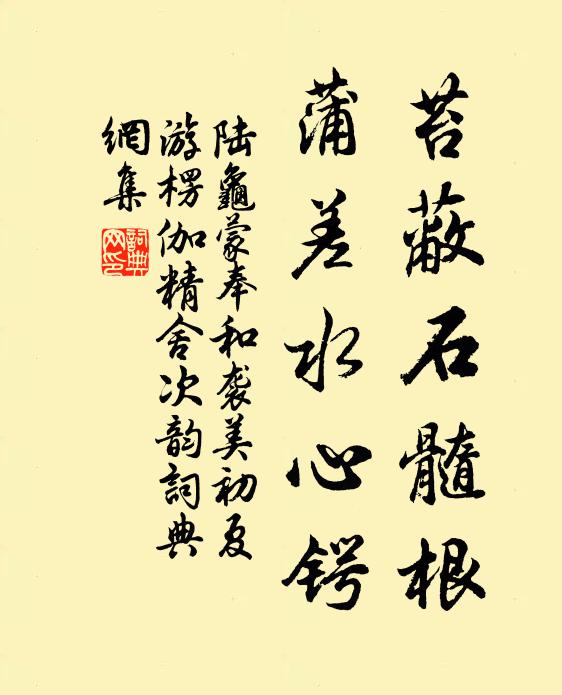 苔蔽石髓根
蒲差水心锷
陆龜蒙奉和袭美初夏
游楞伽精舍次韵詞典
網集
詞典
网印